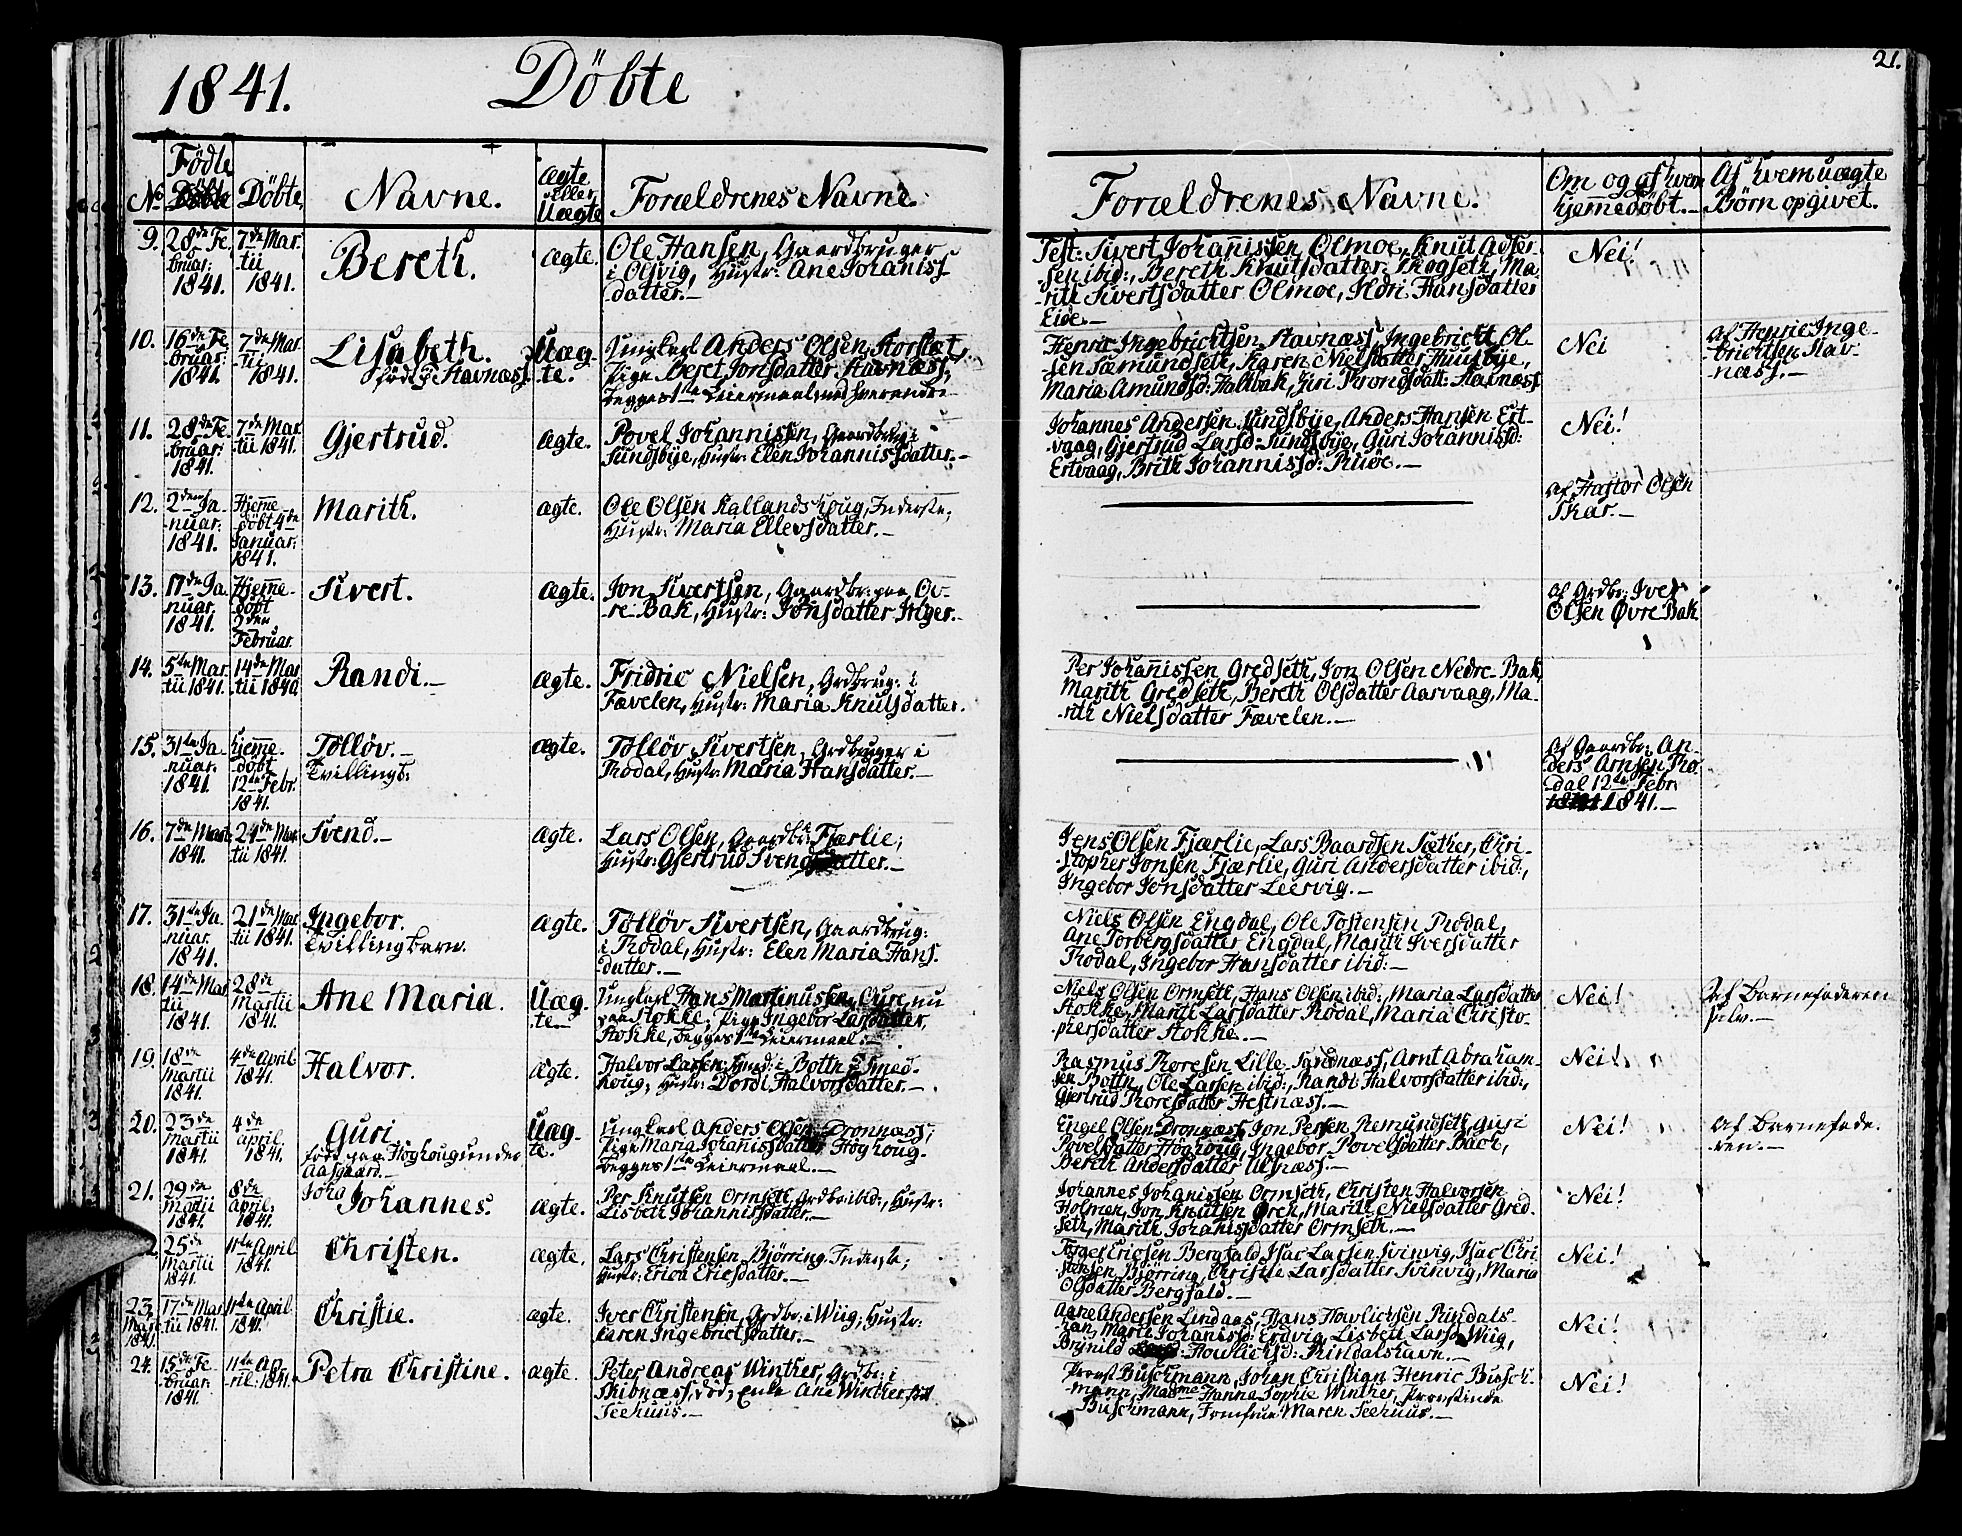 1841. Döbte
21.
No
Födte
Döbte
Navne.
Ægte eller Uægte
Forældrenes Navne.
Forældrenes Navne.
Om og af hvem hjemmedøbt.
Af hvem uægte Børn opgivet.
9. 28de Februar: 1841.
7de Martii 1841.
Bereth.
ægte.
Ole Hansen, Gaardbruger
i Olsvig, Hustr: Ane Johaniss
datter.
Test: Sivert Johannissen Olmoe, Knut
sen ibid:, Bereth Knutsdatter Skogseth, Ma-
rith Sivertsdatter Olmoe, Hansdatter
Eide.
Nei!
10. 16de Februar: 1841.
7de Martii 1841.
Lisabeth.
Uægte.
Ungkarl Anders Olsen
Pige Beret Jonsdatter Stavnæss,
begges 1ste Leiermaal med hverandre
Henric Ingebrichtsen, Stavnæss, Ingebricht Ol-
sen Sæmundseth, Karen Nielsdatter
Maria Amundsd: Halbak, Giri Trondsdatt: Stavnæss
Nei
Af Henric Inge-
brichtsen Stav-
næss.
11. 28de Februar: 1841.
7de Martii 1841.
Gjertrud.
ægte.
Povel Johannissen, Gaardbrug: i
Sundsbye, Hustr: Elen Johannissdatter.
Johannes Andersen Sundsbye, Anders Hansen Ert-
vaag, Gjertrud Larsd: Sundsbye, Guri Johannissd:
Ertvaag, Brith Johannissd:
Nei!
12. 2den Januar: 1841.
Hjemmedöbt 4de Januar: 1841.
Marith.
ægte.
Ole Olsen Kallandshoug, Inderste,
Hustr: Maria Ellevsdatter.
af Hastor Olsen
Skar.
13. 17de Januar. 1841.
Hjemmedöbt 2den Februar.
Sivert.
ægte.
Jon Sivertsen, Gaardbr: paa Öv-
re-Bak, Hustr: Jonsdatter
af Grdbr: Iver
Olsen Øvre Bak.
14. 5te Martii 1841.
14de Martii
Randi.
ægte.
Fridric Nielsen, Grdbrug: i
Fævelen, Hustr: Maria Knutsdatter.
Per Johannissen Gredseth, Jon Olsen Nedre-Bak,
Marith Gredseth, Bereth Olsdatter Aarvaag, Ma-
rith Nielsdatter Fævelen.
15. 31te Januar. 1841
hjemmedöbt 12te Febr. 1841.
Tölløv.
Tvillingb:
ægte.
Tölløv Sivertsen, Grdbruger i
Rodal, Hustr: Maria Hansdatter.
Af Gaardbr: An-
ders Arnsen Ro-
dal 12te Febr.
1841.
16. 7de Martii 1841.
24de Martii 1841.
Svend.
ægte.
Lars Olsen, Gaardbr: Fjærlie;
Hustr: Gjertrud Svendsdatter.
Jens Olsen Fjærlie, Lars Baardsen Sæther, Chri-
stopher Jonsen Fjærlie, Guri Andersdatter ibid:,
Ingebor Jonsdatter Leervig.
17. 31te Januar. 1841.
21de Martii 1841.
Ingebor.
Tvillingbarn.
ægte.
Tölløv Sivertsen, Gaardbrug:
i Rodal, Hustr: Elen Maria Hans
datter.
Niels Olsen Engdal, Ole Tostensen Rodal,
Ane Torbergsdatter Engdal, Marit Iversdatter
Rodal, Ingebor Hansdatter ibid:
18. 14de Martii 1841.
28de Martii 1841.
Ane Maria.
Uægte.
Ungkarl Hans Martinussen nu
paa Stokke, Pige Ingebor Larsdatter,
Stokke, begges 1ste Leiermaal.
Niels Olsen Ormseth, Hans Olsen ibid:, Maria Larsdatter
Stokke, Marit Larsdatter Rodal, Maria Christo-
phersdatter Stokke.
Nei!
Af Barnefaderen
selv.
19. 18de Martii 1841.
4de April 1841.
Halvor.
ægte.
Halvor Larsen Smed: i Botn Smed-
houg, Hustr: Dordi Halvorsdatter.
Rasmus Thoresen Lille Sandnæss, Arnt Abraham-
sen Botn, Ole Larsen ibid:, Randi Halvorsdatter ibid:,
Gjertrud Thoresdatter Hestnæss.
Nei!
20. 23de Martii 1841.
4de April. 1841.
Guri
født paa Høghoug under
Aasgaard.
Uægte.
Ungkarl Anders Olsen Dronnæss;
Pige Maria Johannissdatter Höghoug.
begges 1ste Leiermaal.
Engel Olsen Dronnæss, Jon Persen Remundseth, Guri
Povelsdatter Höghoug, Ingebor Povelsdatter
Bereth Andersdatter
Nei!
Af Barnefade-
ren.
21. 29de Martii 1841.
8de April. 1841.
Johannes.
ægte.
Per Knutsen Ormseth, Grdbr: ibid:, Hustr:
Lisbeth Johannissdatter.
Johannes Johanissen Ormseth, Christen Halvorsen
Holmen, Jon Knutsen Marith Nielsdatter Gred-
seth, Marith Johanissdatter Ormseth.
Nei!
25de Martii 1841.
11te April 1841.
Christen.
ægte.
Lars Christensen, Bjørring, Inderste;
Hustr: Erica Ericsdatter.
Torger Ericsen Bergfald, Isac Larsen Svinvig, Isac Chri
stensen Bjørring, Christie Larsdatter Svinvig, Maria
Olsdatter Bergfald.
Nei!
23. 17de Martii 1841.
11te April. 1841.
Christie.
ægte.
Iver Christensen, Grdbr: i Wiig, Hustr:
Karen Ingebrictsdatter.
Aane Andersen Lindaas, Hans Howlichsen Rindals-
havn, Marit Johanissd: Lisbett Larsd: Wiig,
Brynild Howlichsd: Rindalshavn.
Nei!
24. 15de Februar: 1841.
11te April: 1841.
Petra Christine.
ægte.
Peter Andreas Winther, Grdbr: i
Skibnæss, död, Enke Ane Winther
Seehuus.
Provst Buschmann, Johan Christian Henric Busch-
mann, Madme Hanna Sophie Winther, Provstinde
Buschmann, Jomfrue Maren Seehuus.
Nei!